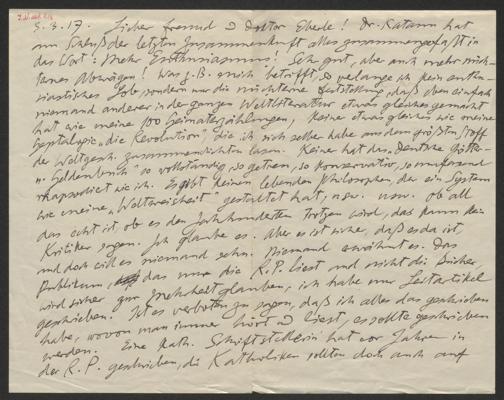 3.3.17. Lieber Freund u Doktor Eberle! Dr. Katann hat
am Schluß der letzten Zusammenkunft alles zusammengefaßt in
das Wort: Mehr Enthusiasmus! Sehr gut, aber auch mehr nüch-
ternes Abwägen! Was z.B. mich betrifft, so verlange ich kein enthu-
siastisches Lob, sondern nur die nüchterne Feststellung, daß eben einfach
niemand anderer in der ganzen Weltliteratur etwas gleiches gemacht
hat wie meine 100 Heimaterzählungen, keiner etwas gleiches wie meine
Heptalogie „die Revolution", die ich sich selbe habe aus dem größten Stoff
der Weltgesch. zusammendichten lassen. Keiner hat das „Deutsche Götter-
u. Heldenbuch" so vollständig, so getreu, so konservativ, so
rhapsodiert wie ich. Es gibt keinen lebenden Philosophen, der ein System
wie meine „Weltweisheit" gestaltet hat, usw. usw. Ob all
das echt ist, ob es den Jahrhunderten trotzen wird, das kann kein
Kritiker sagen. Ich glaube es. Aber es ist sicher, daß es da ist,
und doch will es niemand sehn. Niemand erwähnt es. Das
Publikum, das nur die R.P. liest und nicht die Bücher
wird sicher zur Mehrheit glauben, ich habe nur Leitartikel
geschrieben. Ist es verboten zu sagen, daß ich alles das geschrieben
habe, wovon man immer hört u liest, es sollte geschrieben
werden. Eine kath. Schriftstellerin hat vor Jahren in
der R.P. geschrieben, die Katholiken sollten doch auch auf